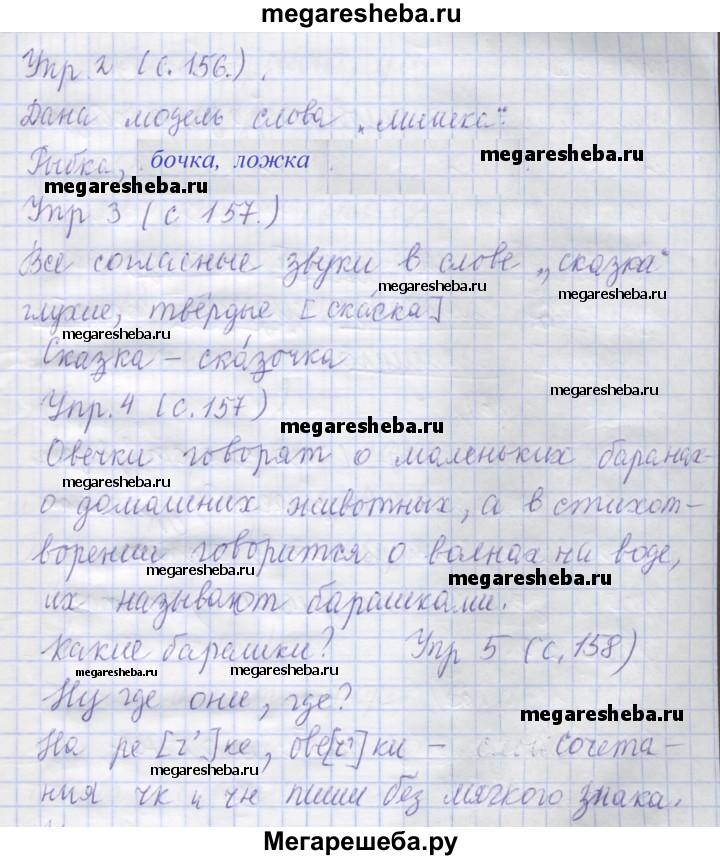 megaresheba.ru
Упр 2 (с. 156.).
Дана модель слова „мишка“.
Рыбка, бочка, ложка
megaresheba.ru
megaresheba.ru
Упр 3 (с 157.)
Все согласные звуки в слове „сказка“
megaresheba.ru
megaresheba.ru
глухие, твёрдые [скáска]
megaresheba.ru
Сказка – скáзочка
megaresheba.ru
Упр. 4 (с. 157)
megaresheba.ru
Овечки говорят о маленьких баранах-
о домашних животных, а в стихот-
ворении говорится о волнах на воде,
megaresheba.ru
megaresheba.ru
их называют барашками.
Какие барашки? Упр 5 (с. 158)
megaresheba.ru
megaresheba.ru
Ну где они, где?
megaresheba.ru
На ре[ч']ке, ове[ч']ки – сочета-
megaresheba.ru
ния чк и чн пиши без мягкого знака.
megaresheba.ru
Мегарешеба.ру